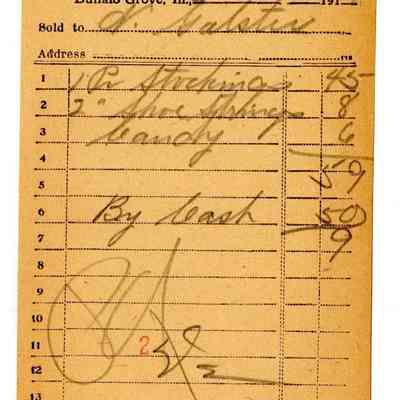 Buffalo Grove, Ill., 191
Sold to N. Galster
Address
1 1 Pr Stockings 45
2 2 " Shoe Strings 8
3 Candy 6
4 59
5
6 By Cash 50
7 9
8
9
10
11 2
12
13